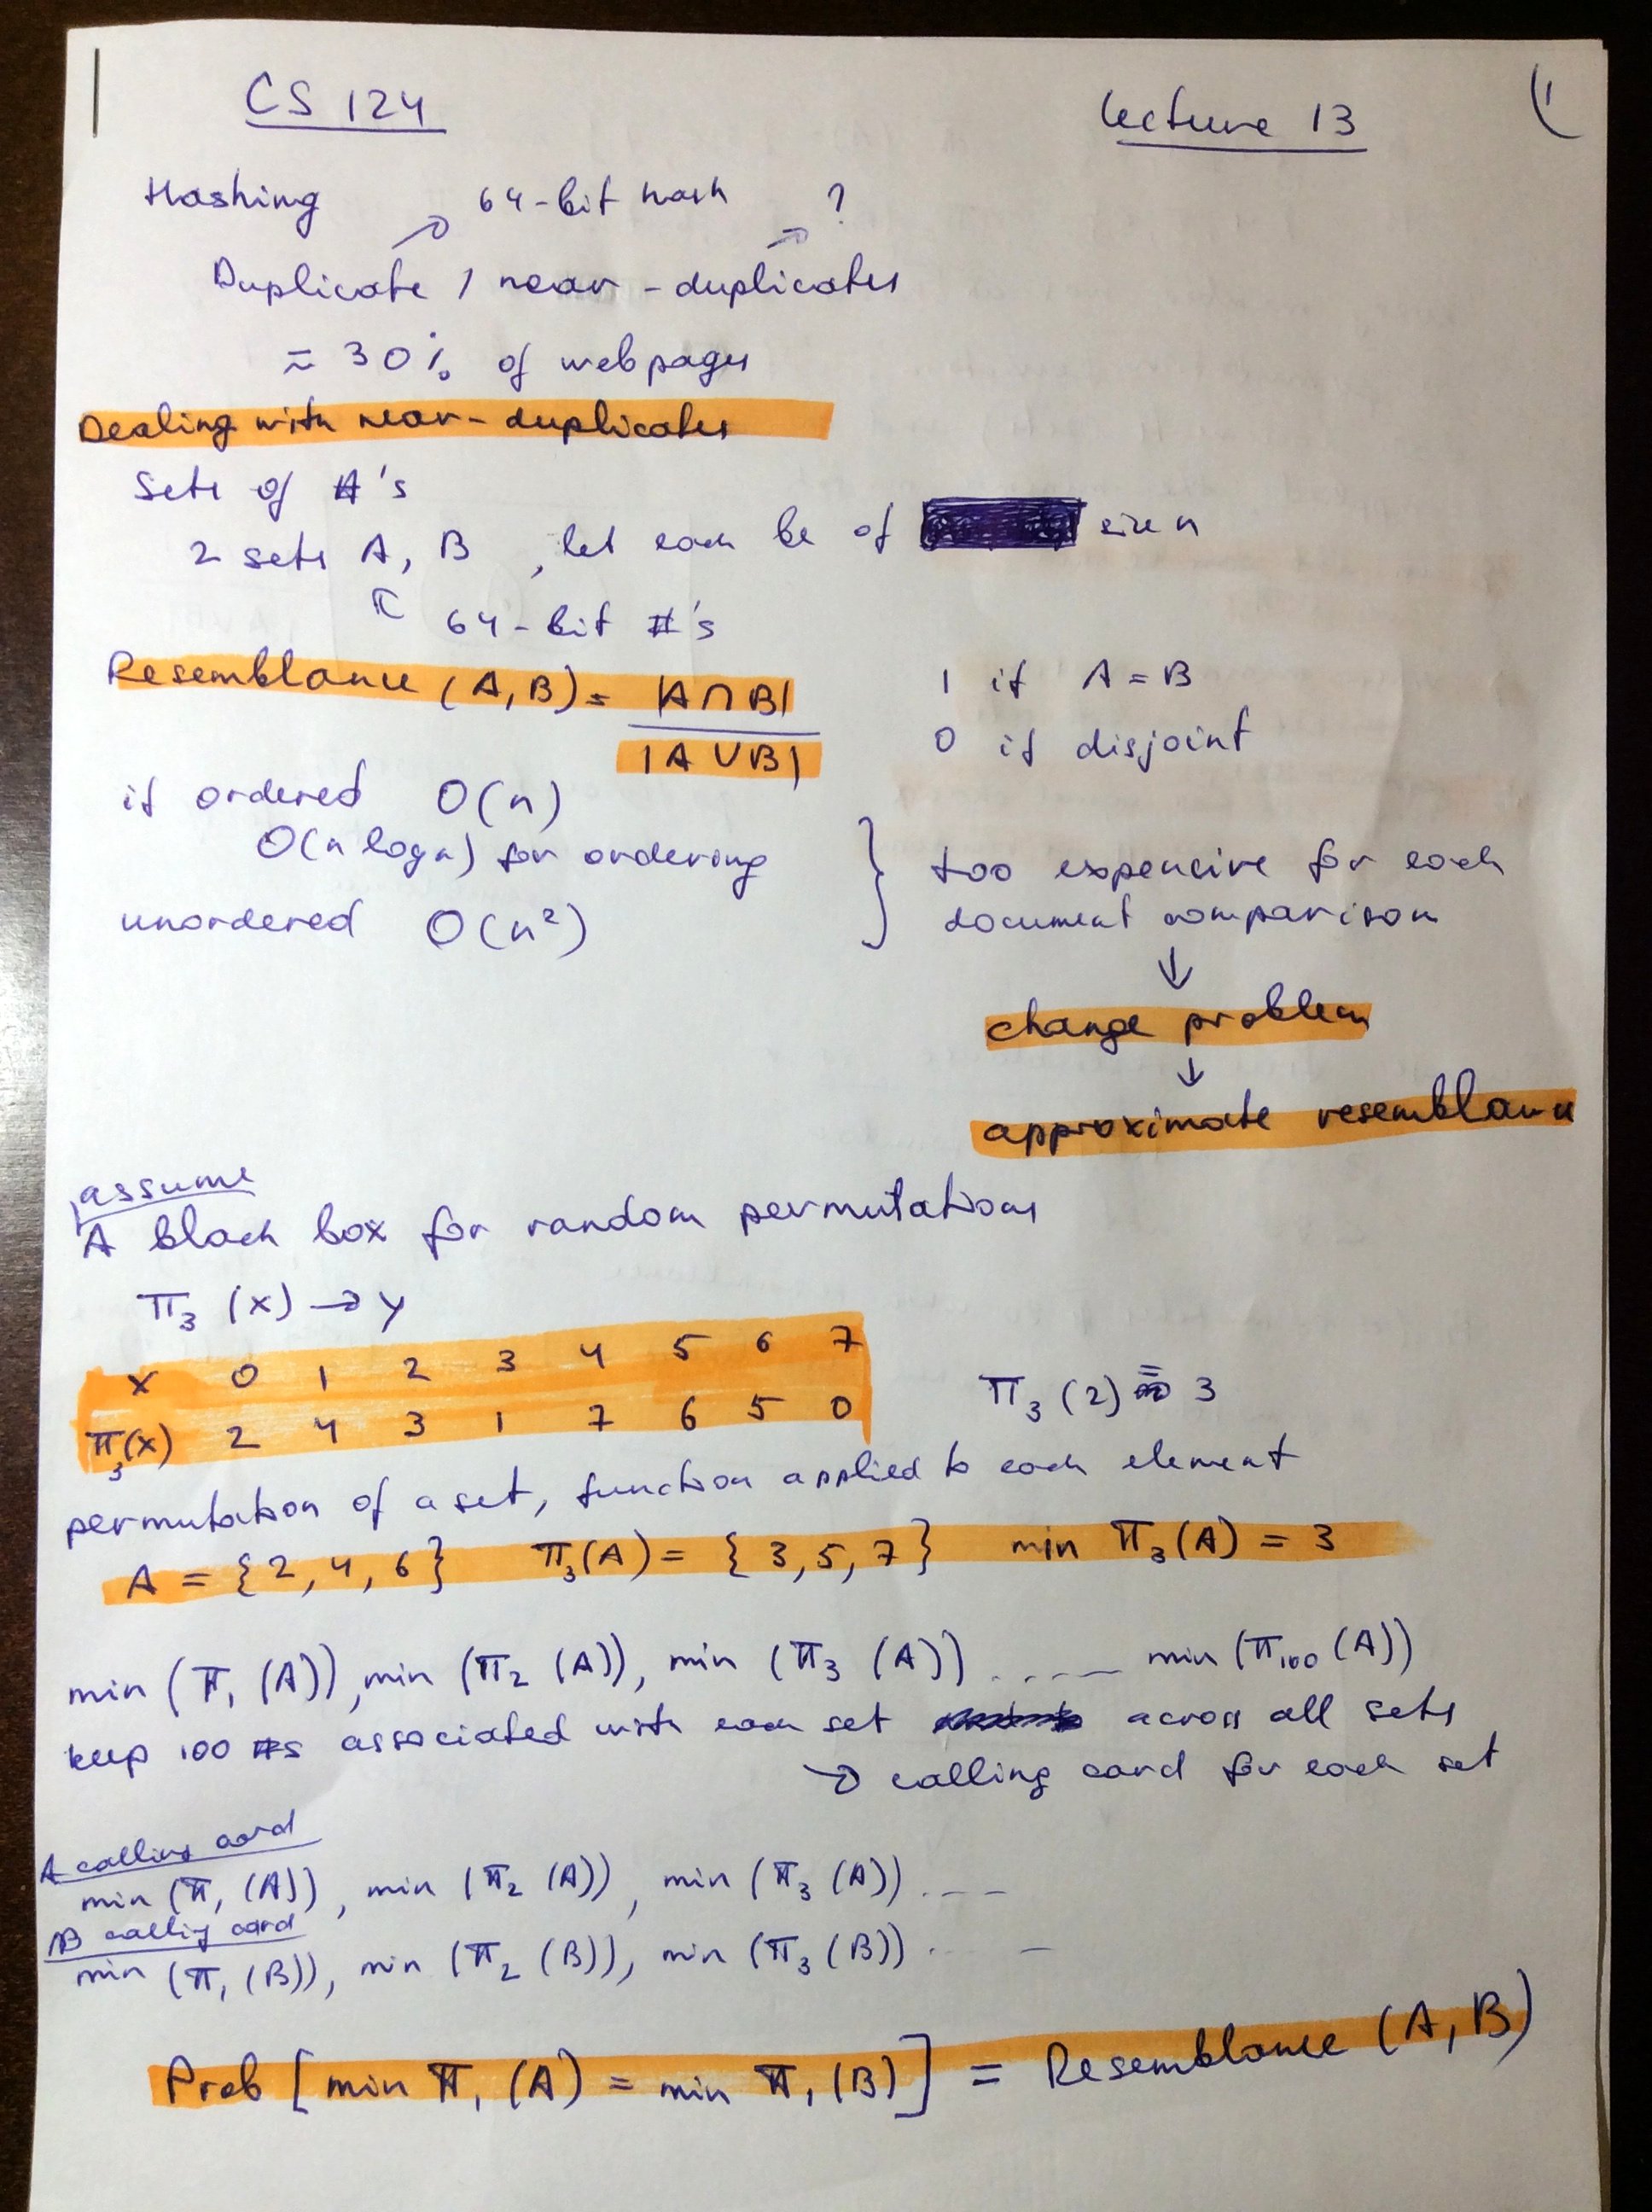 CS 124 Lecture 13 1
Hashing 64-bit hash ?
Duplicate / near-duplicates
≈ 30% of webpages
Dealing with near-duplicates
Sets of #'s
2 sets A, B, let each be of size n
64-bit #'s
Resemblance (A, B) = |A ∩ B|
|A ∪ B|
1 if A = B
0 if disjoint
if ordered O(n)
O(n log n) for ordering
unordered O(n²)
} too expensive for each
document comparison
↓
change problem
↓
approximate resemblance
assume
A black box for random permutations
π₃ (x) → y
x 0 1 2 3 4 5 6 7
π₃(x) 2 4 3 1 7 6 5 0
π₃ (2) = 3
permutation of a set, function applied to each element
A = {2, 4, 6} π₃(A) = {3, 5, 7} min π₃(A) = 3
min (π₁ (A)), min (π₂ (A)), min (π₃ (A)) ..... min (π₁₀₀ (A))
keep 100 #s associated with each set across all sets
→ calling card for each set
A calling card
min (π₁ (A)), min (π₂ (A)), min (π₃ (A)) ....
B calling card
min (π₁ (B)), min (π₂ (B)), min (π₃ (B)) ....
Prob [min π₁ (A) = min π₁ (B)] = Resemblance (A, B)